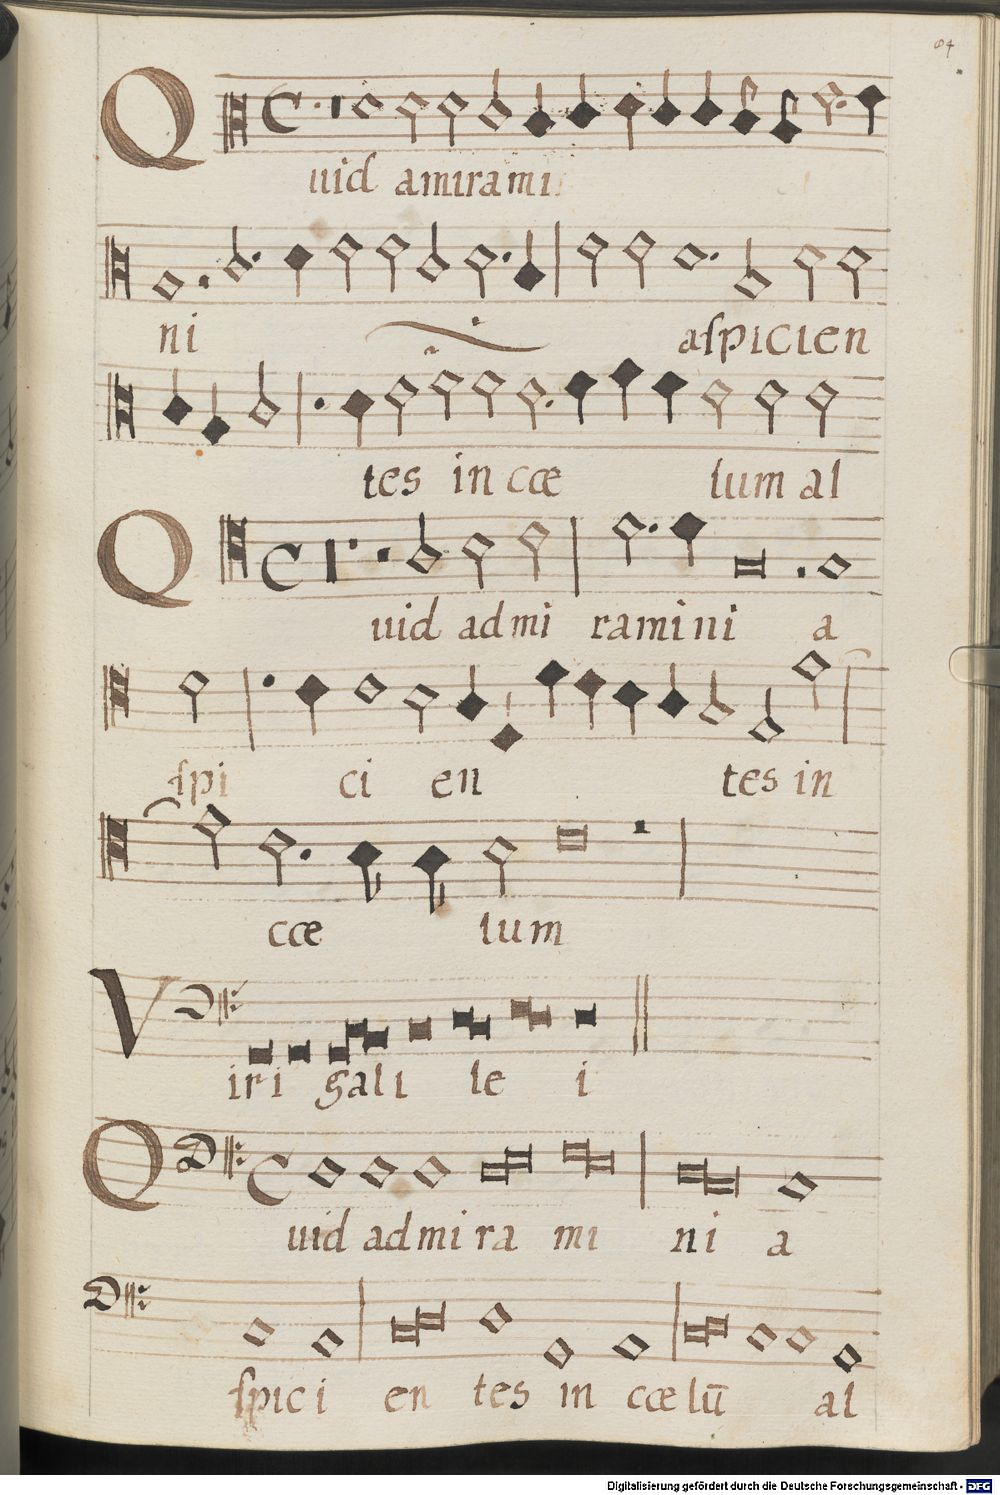 84
Quid amirami
ni aſpicien
tes in cœ lum al
Quid admi ramini a
ſpi ci en tes in
cœ lum
Viri gali le i
Quid admira mi ni a
ſpici en tes in cœlū al
Digitalisierung gefördert durch die Deutsche Forschungsgemeinschaft - DFG